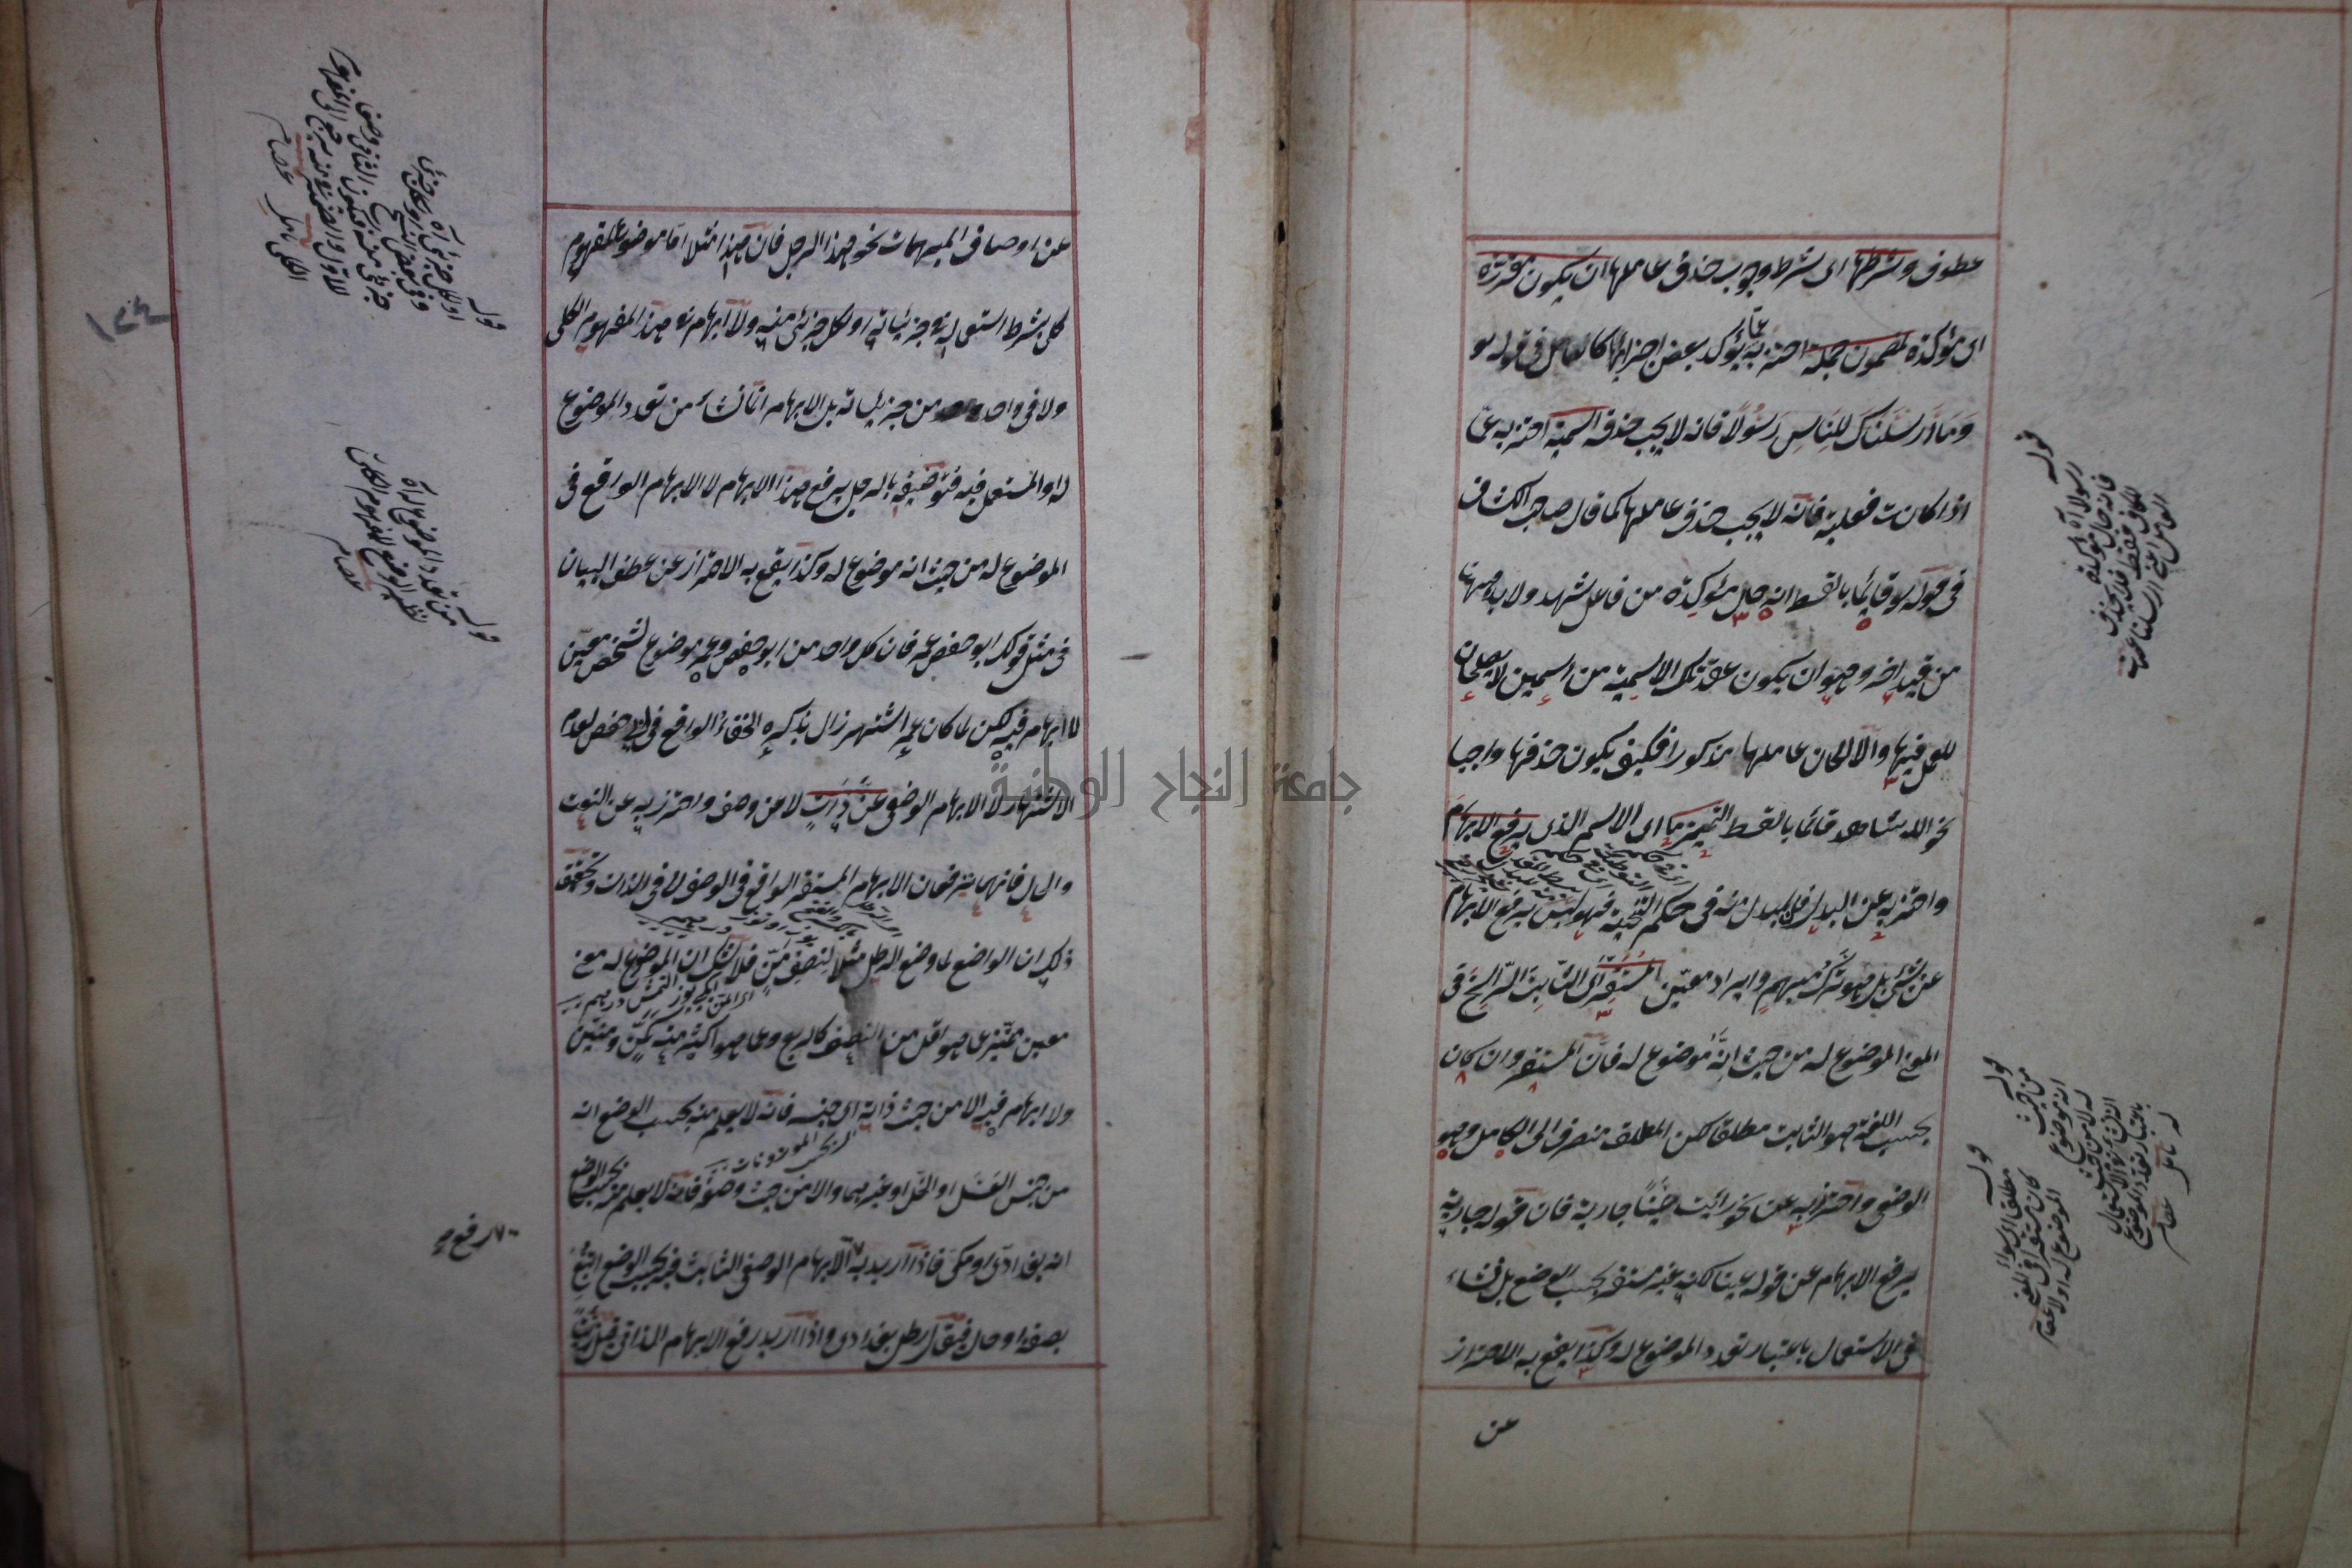 عطوف وشرطها اى شرط وجوب حذف عاملها ان يكون مقررة
اى مؤكدة لمضمون جملة احترز به عما يؤكد بعض اجزائها كالعامل فى قوله تع
وَمَا اَرسَلنَاكَ لِلنَاسِ رَسُولًا فانه لا يجب حذفه اسمية احترز به عمّا
اذا كانت فعلية فانه لا يجب حذف عاملها كما قال صاحب الكشاف
فى قوله تع قائما بالقسط انه حال مؤكدة من فاعل شهد ولا بد ههنا
من قيد اخر وهو ان يكون عقد تلك الاسمية من اسمين لا يصلحان
للعمل فيها والا لكان عاملها مذكورا فكيف يكون حذفها واجبا
نحو الله شاهد قائما بالقسط التمييز ما اى الاسم الذى يرفع الابهام
واحترز به عن البدل فان المبدل منه فى حكم التنحية فهو ليس يرفع الابهام
عن شئ بل هو ترك مبهم وايراد معيّن المستقر اى الثابت الراسخ فى
المعنى الموضوع له من حيث انّه موضوع له فانّ المستقر وان كان
بحسب اللغة هو الثابت مطلقا لكن المطلق منصرف الى الكامل وهو
الوضعى واحترز به عن نحو رأيت عينًا جارية فان قوله جارية
يرفع الابهام عن قوله عينا لكنه غير مستقر بحسب الوضع بل نشاء
فى الاستعمال باعتبار تعدد الموضوع له وكذا يقع به الاحتراز
عن
قوله
رسولا آه
فانه حال مؤكدة
للكاف فقط فلا يحذف
العامل اعنى ارسلنا
قوله
من حيث
انه موضوع
له لا من حيث
باعتبار تعدد الموضوع
له تأمل عصام
قوله
مطلقا اى سواء
كان مستقرا فى المعنى
الموضوع له اولا عصام
عن اوصاف المبهمات نحو هذا الرجل فان هذا مثلا اما موضوع لمفهوم
كلى بشرط استعماله فى جزئياته او لكل جزئى منه ولا ابهام فى هذا المفهوم الكلى
ولا فى واحد واحد من جزئياته بل الابهام انما نشأ من تعدد الموضوع
له او المستعمل فيه فتوصيفه بالرجل يرفع هذا الابهام لا الابهام الواقع فى
الموضوع له من حيث انه موضوع له وكذا يقع به الاحتراز عن عطف البيان
فى مثل قولك ابو حفص عمر فان كل واحد من ابو حفص وعمر موضوع لشخص معيّن
لا ابهام فيه لكن لما كان عمر اشتهر زال بذكره الخفاء الواقع فى ابى حفص لعدم
الاشتهار لا الابهام الوضعى عَنْ ذَاتٍ لا عن وصف واحترز به عن النعت
والحال فانهما يرفعان الابهام المستقر الواقع فى الوصف لا فى الذات وتحقيق
ذلك ان الواضع لما وضع الرطل مثلا لنصف مَنّ فلا شك ان الموضوع له معنى
معين متميز عما هو اقل من النصف كالربع وعما هو اكثر منه كمنّ ومنين
ولا ابهام فيه الا من حيث ذاته اى جنسه فانه لا يعلم منه بحسب الوضع انه
من جنس العسل او الخل او غيرهما والا من حيث وصفه فانه لا يعلم منه بحسب الوضع
انه بغدادى او مكى فاذا اريد به الابهام الوصفى الثابت فيه بحسب الوضع اتبع
بصفة او حال فيقال رطل بغدادى واذا اريد رفع الابهام الذاتى قيل زيتًا
قوله
قوله
من تعدد الموضوع له آه
عصام
رفع
جامعة النجاح الوطنية